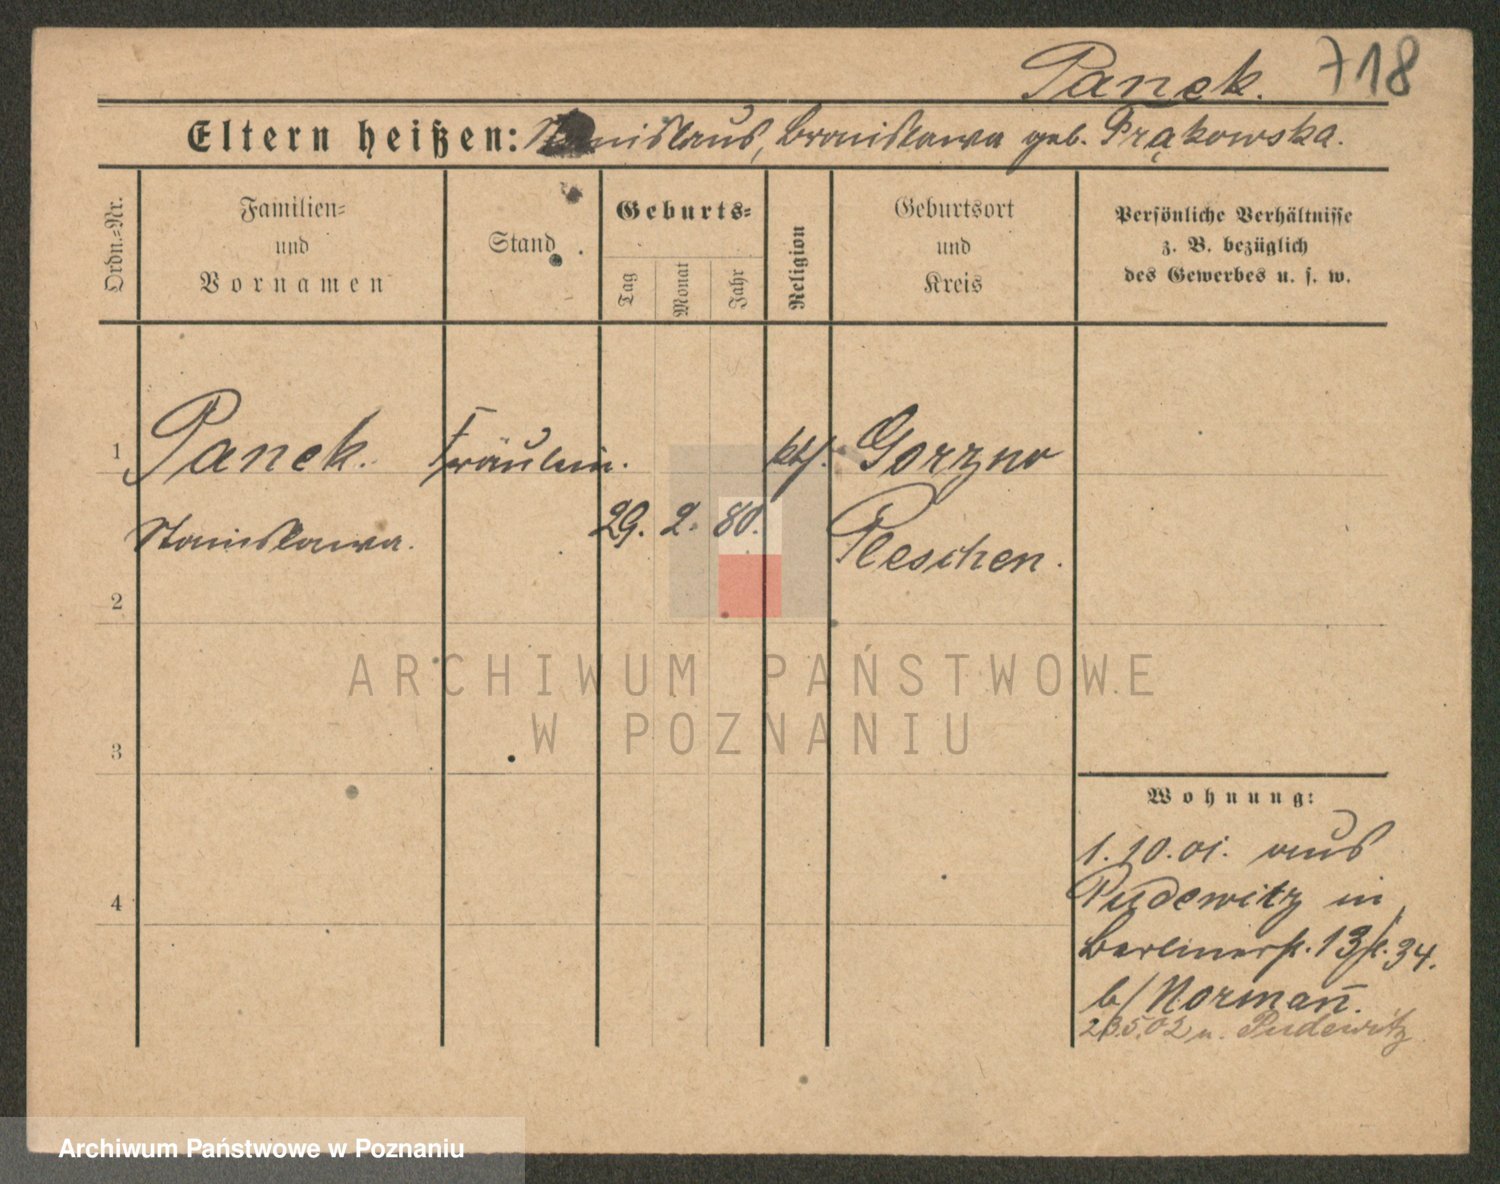 Panek. 718
Eltern heißen: Stanislaus, Bronislawa geb. Prąkowska.
Ordn.=Nr.
Familien=
und
Vornamen
Stand
Geburts=
Tag
Monat
Jahr
Religion
Geburtsort
und
Kreis
Persönliche Verhältnisse
z. B. bezüglich
des Gewerbes u. s. w.
1 Panek. Fräulein. kth. Gorzno
Stanislawa. 29. 2. 80. Pleschen.
2
ARCHIWUM PAŃSTWOWE
W POZNANIU
3
Wohnung:
1.10.01. aus
Pudewitz in
4
Berlinerst. 13 34.
b/ Normañ.
23.5.02 n. Pudewitz
Archiwum Państwowe w Poznaniu